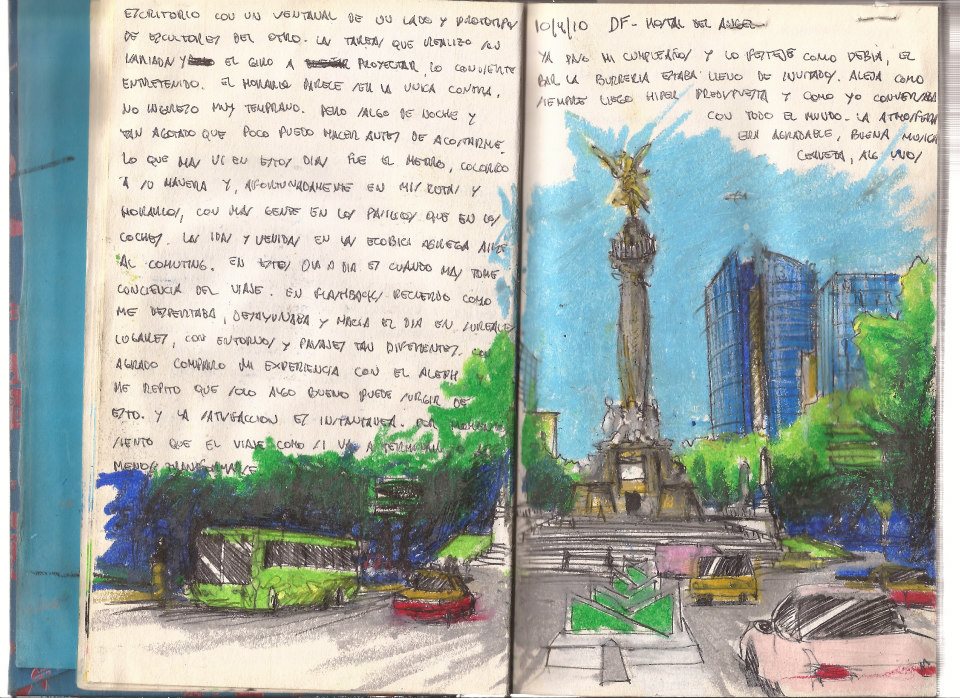 ESCRITORIO CON UN VENTANAL DE UN LADO Y PROTOTIPOS
DE ESCULTORES DEL OTRO. LAS TAREAS QUE REALIZO SON
VARIADAS Y EL GIRO A PROYECTAR, LO CONVIERTE
ENTRETENIDO. EL HORARIO PARECE SER LA UNICA CONTRA,
NO INGRESO MUY TEMPRANO. PERO SALGO DE NOCHE Y
TAN AGOTADO QUE POCO PUEDO HACER ANTES DE ACOSTARME.
LO QUE MAS VI EN ESTOS DIAS FUE EL METRO, COLORIDO
A SU MANERA Y, AFORTUNADAMENTE EN MIS RUTAS Y
HORARIOS, CON MAS GENTE EN LOS PASILLOS QUE EN LOS
COCHES. LAS IDAS Y VENIDAS EN LA ECOBICI AGREGA AIRE
AL COMUTING. EN ESTES DIA A DIA ES CUANDO MAS TOME
CONCIENCIA DEL VIAJE. EN FLASHBACKS RECUERDO COMO
ME DESPERTABA, DESAYUNABA Y HACIA EL DIA EN SUREALES
LUGARES, CON ENTORNOS Y PAISAJES TAN DIFERENTES. CON
AGRADO COMPARO MI EXPERIENCIA CON EL ALEPH
ME REPITO QUE SOLO ALGO BUENO PUEDE SURGIR DE
ESTO. Y LA SATISFACCION ES INSTANTANEA. POR MOMENTOS
SIENTO QUE EL VIAJE COMO SI VA A TERMINAR
MENOS TRANSFORMARSE
10/4/10 DF - HOSTAL DEL ANGEL
YA PASO MI CUMPLEAÑOS Y LO FESTEJE COMO DEBIA, EL
BAR LA BURRERIA ESTABA LLENO DE INVITADOS. ALEJA COMO
SIEMPRE LUEGO HIPER PRESUPUESTA Y COMO YO CONVERSABA
CON TODO EL MUNDO. LA ATMOSFERA
ERA AGRADABLE, BUENA MUSICA
CERVEZA, ALG UNOS